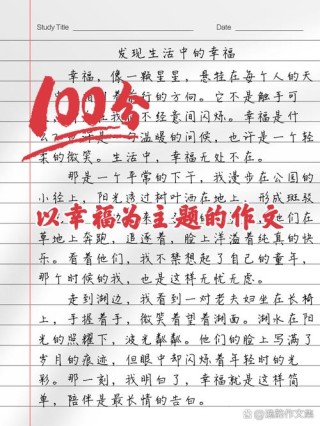 Study Title
Date
发现生活中的幸福
幸福，像一颗星星，悬挂在每个人的天
前行的方向。它不是触手可
不经意间闪烁。幸福是什
一句温暖的问候，也许是一个轻
柔的微笑。生活中，幸福无处不在。
那是一个平常的下午，我漫步在公园的
小径上，阳光透过树叶洒在地上，形成斑驳
们在
草地上奔跑，追逐着，脸上洋溢着纯真的快
乐。看着他们，我不禁想起了自己的童年，
那个时候的我，也是这样无忧无虑。
走到湖边，我看到一对老夫妇坐在长椅
上，手握着手，微笑着望着湖面。湖水在阳
光的照耀下，波光粼粼。他们的脸上写满了
岁月的痕迹，但眼中却闪烁着年轻时的光
彩。那一刻，我明白了，幸福就是这样简
单，陪伴是最长情的告白。
100分
以幸福为主题的作文